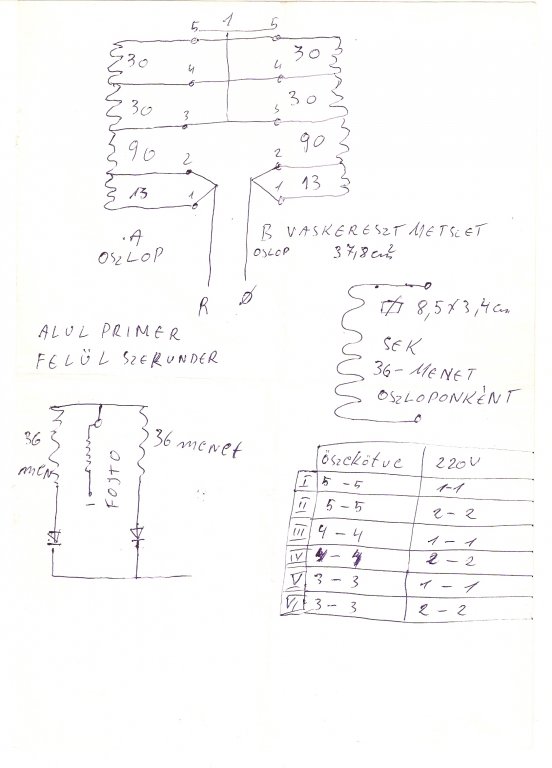 5 1 5
30 30
4 4
30 30
3 3
90 90
2 2
13 13
1 1
A
OSZLOP
B VASKERESZTMETSZET
OSLOP 37,8cm²
R Ø
8,5 x 3,4 cm
ALUL PRIMER
FELÜL SZEKUNDER
SEK
36 - MENET
OSZLOPONKÉNT
36
men
FOJTO
36 menet
öszekötve 220V
I 5 - 5 1-1
II 5 - 5 2 - 2
III 4 - 4 1 - 1
IV 4 - 4 2 - 2
V 3 - 3 1 - 1
VI 3 - 3 2 - 2